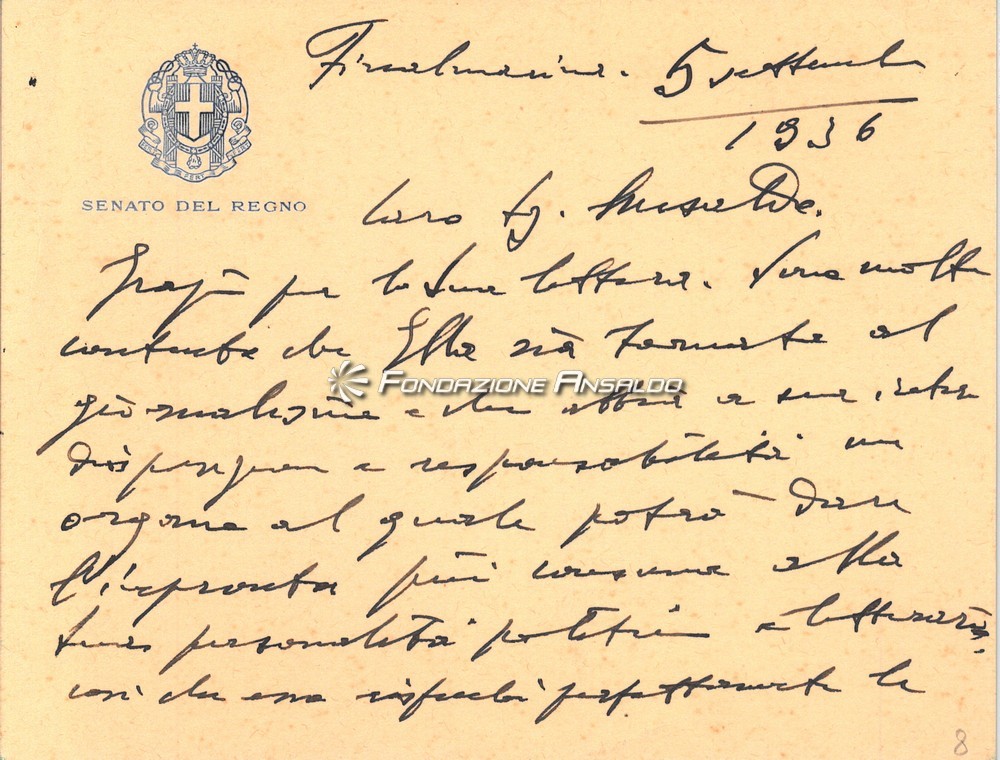 Finalmarina. 5 settembre
1936
SENATO DEL REGNO
Caro Sg.
Grazie per la sua lettera. Sono molto
contento che Ella sia tornato al
FONDAZIONE ANSALDO
giornalismo e che abbia a sua intera
disposizione e responsabilità un
organo al quale potrà dare
l'impronta più consona alla
sua personalità politica e letteraria,
così che esso rispecchi perfettamente le
8